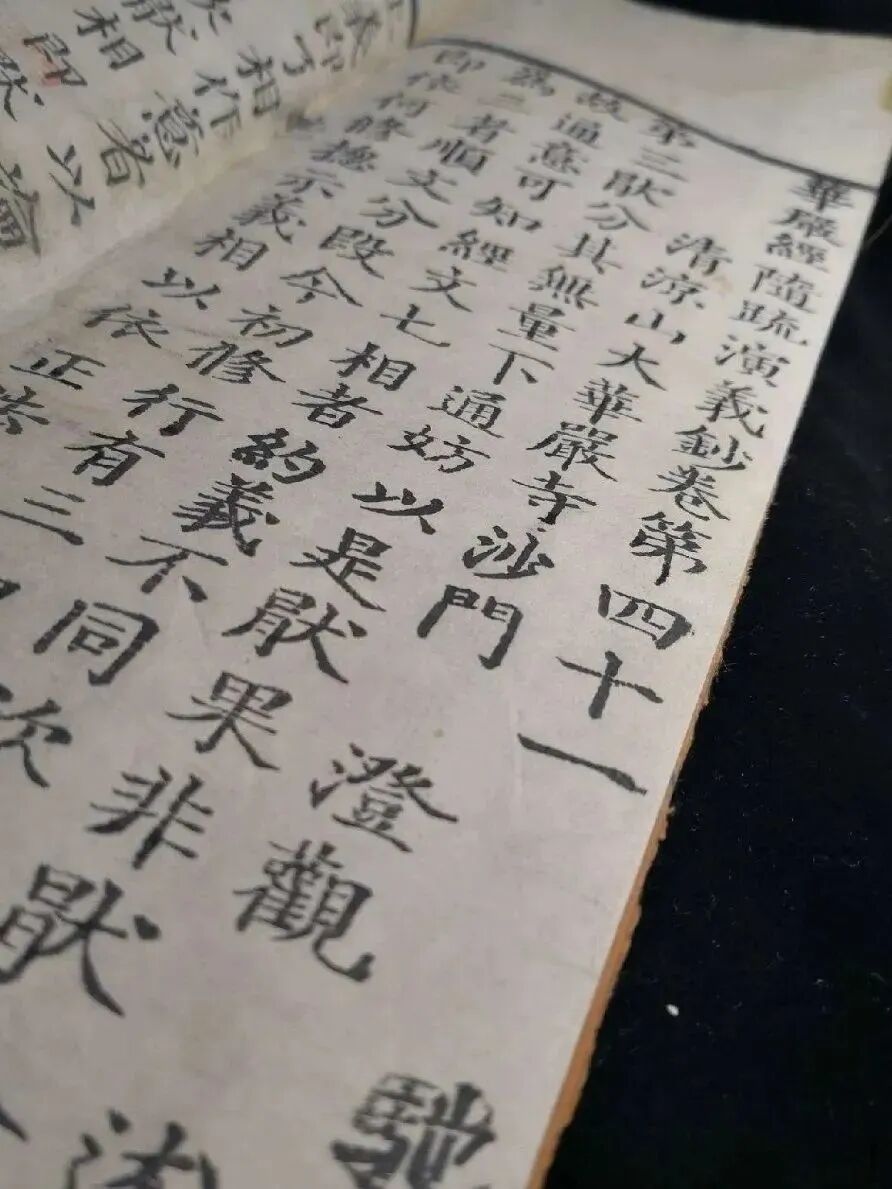 華嚴經隨疏演義鈔卷第四十一 馳
清涼山大華嚴寺沙門 澄觀
第三猒分其無量下通妨以是猒果非猒
故通意可知經文七相者約義不同次
為二者順文分段今初修行有三
即依何修揔示義相以依正法
義即了相作意者以
猒相即猒
論